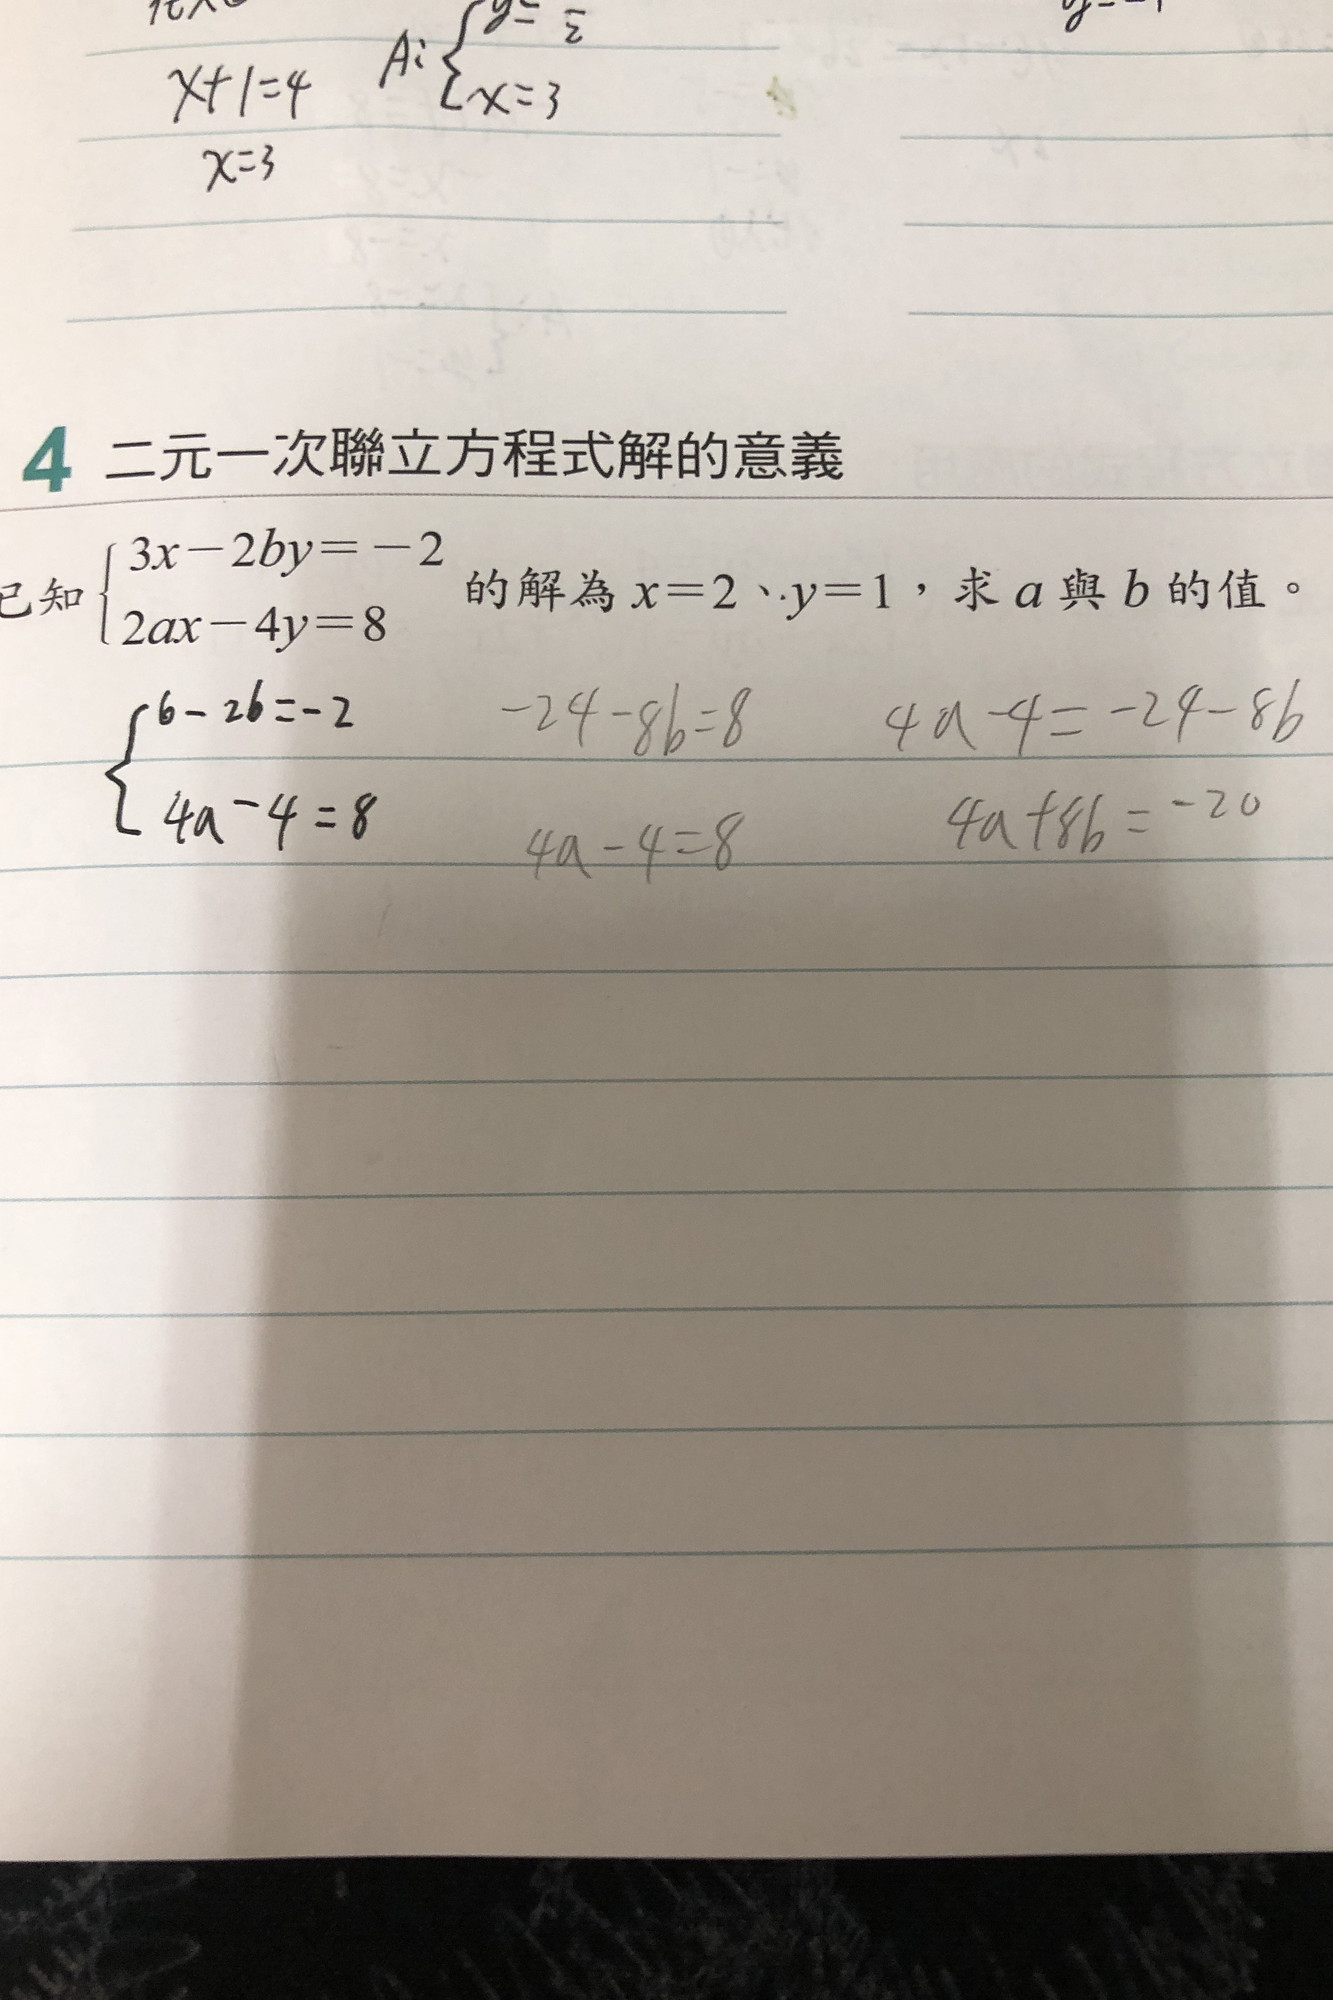 A: { y=
x+1=4
x=3
x=3
4 二元一次聯立方程式解的意義
已知 { 3x－2by＝－2
2ax－4y＝8
的解為 x＝2、y＝1，求 a 與 b 的值。
{ 6-2b=-2
4a-4=8
-24-8b=8
4a-4=8
4a-4=-24-8b
4a+8b=-20